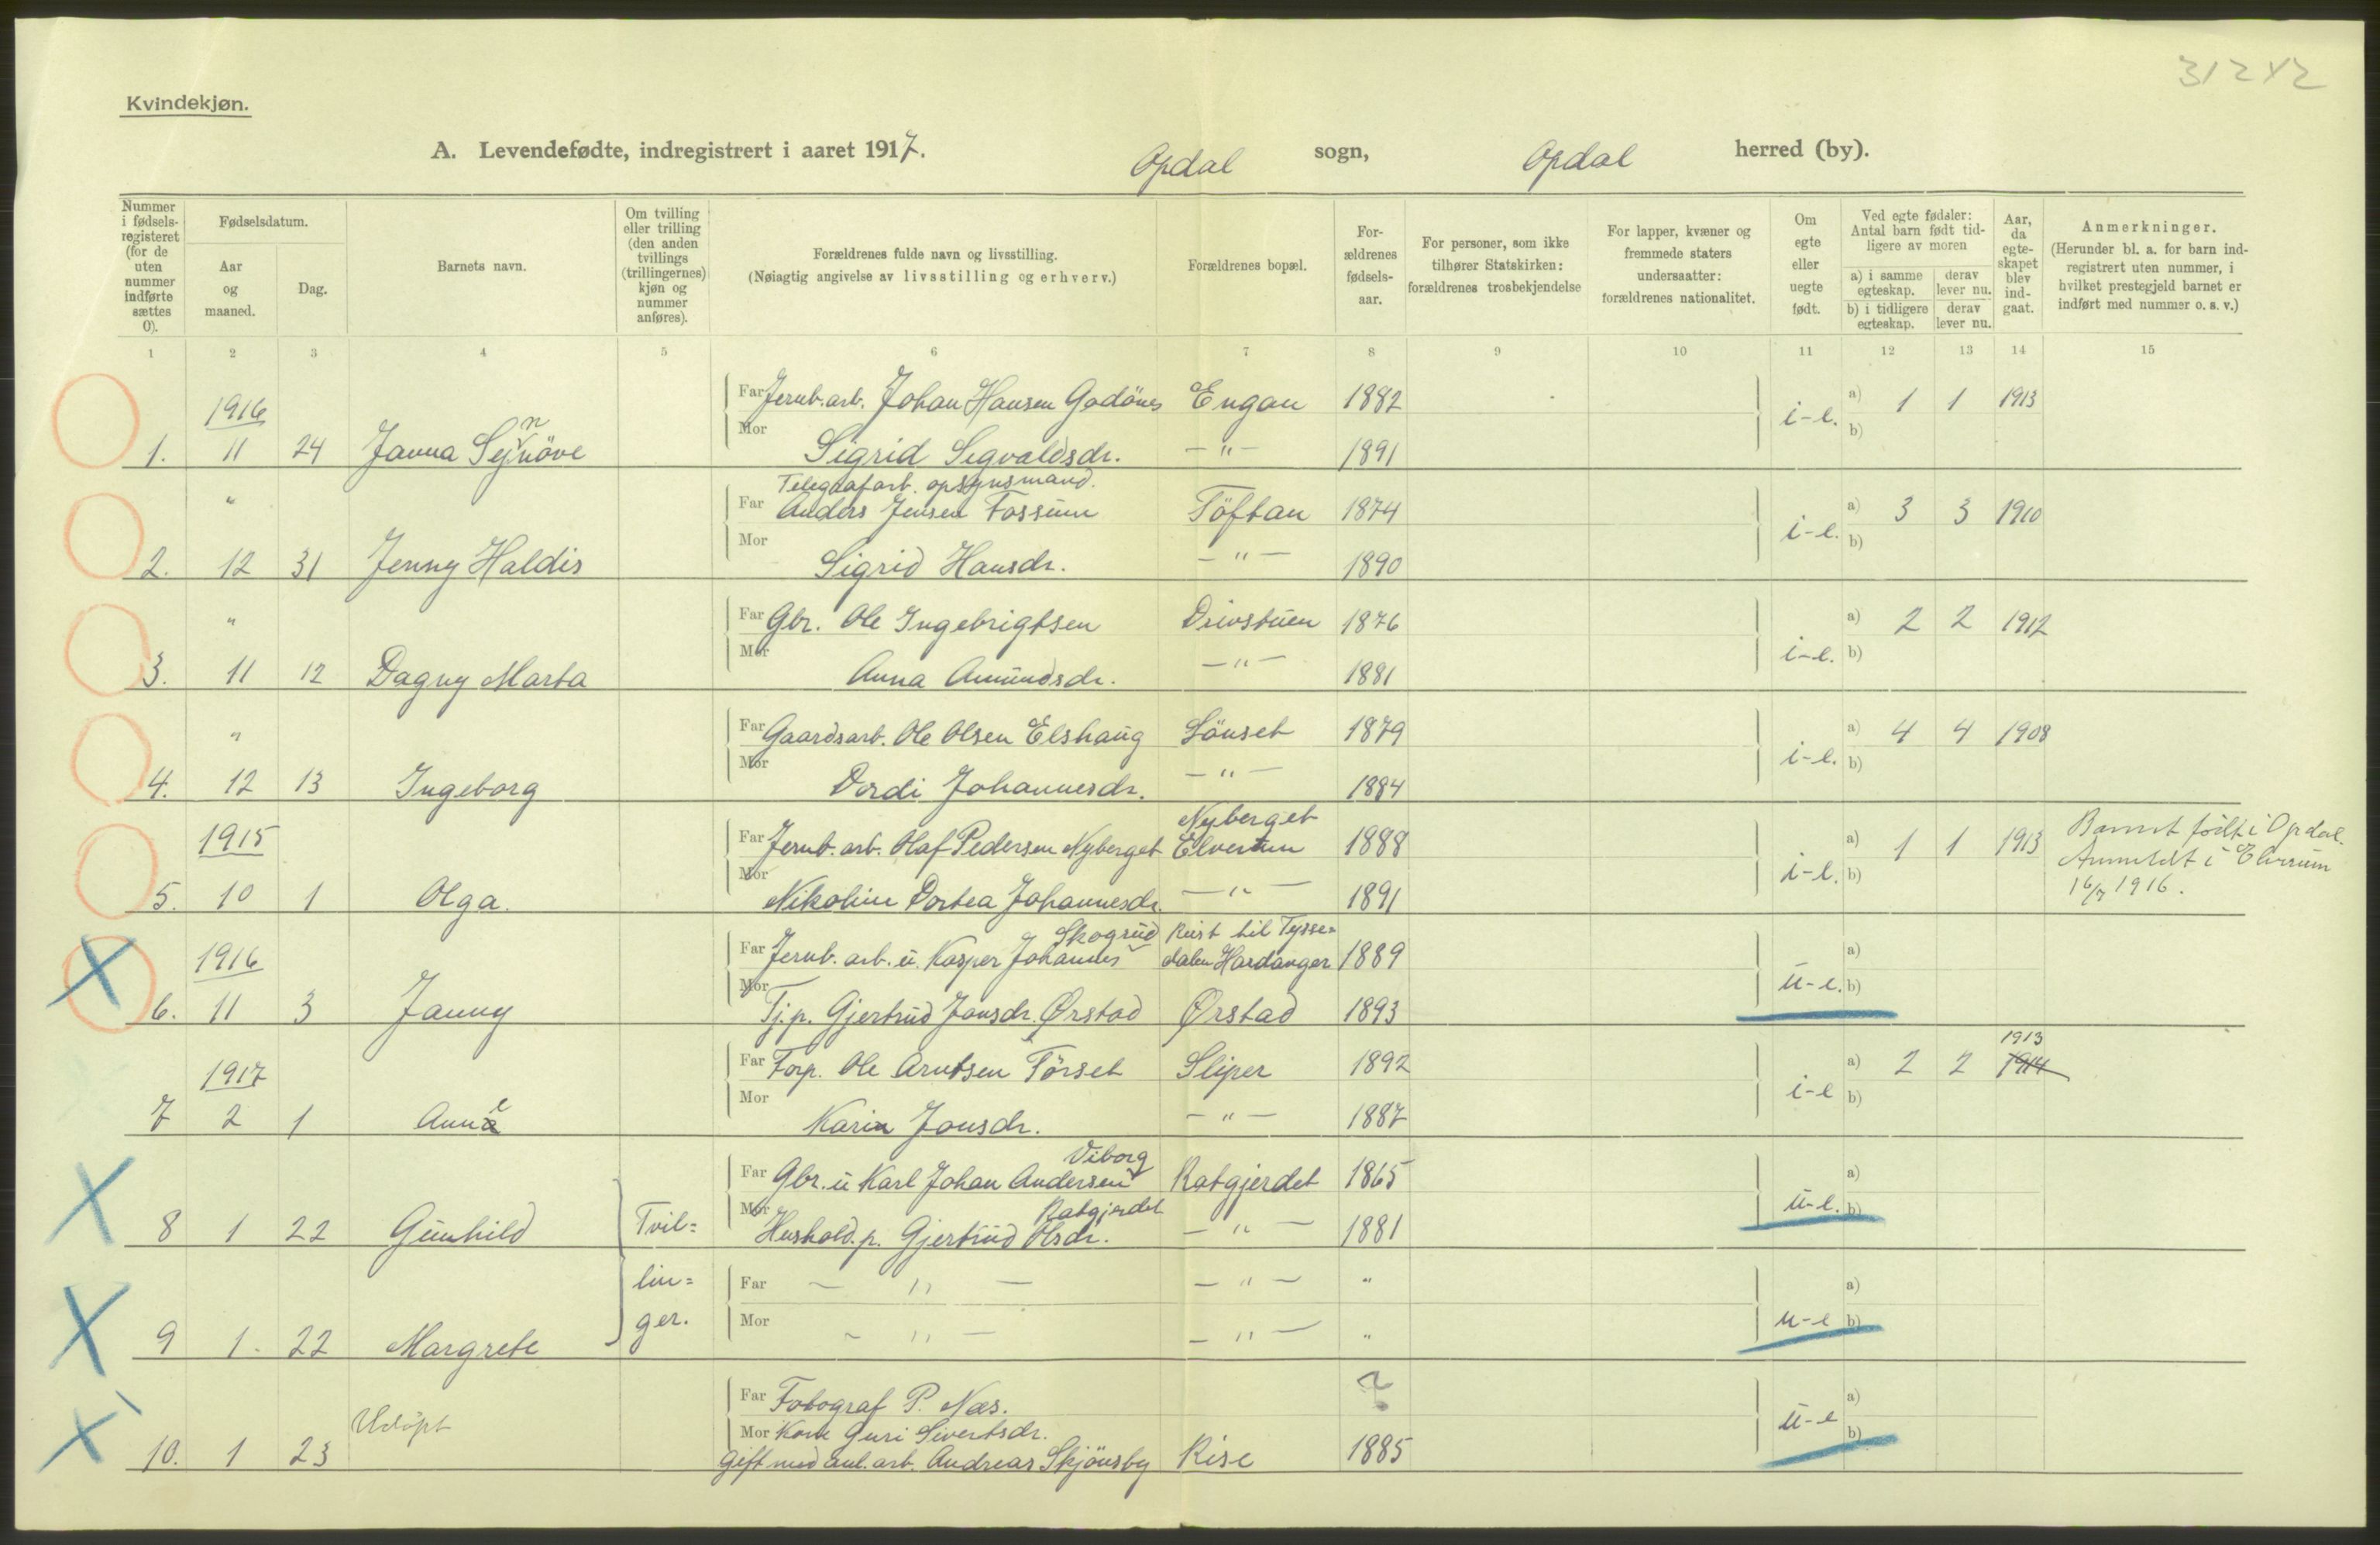 31242
Kvindekjøn.
A. Levendefødte, indregistrert i aaret 1917. Opdal sogn, Opdal herred (by).
Nummer i fødsels-registeret (for de uten nummer indførte sættes 0).
Fødselsdatum.
Aar og maaned.
Dag.
Barnets navn.
Om tvilling eller trilling (den anden tvillings (trillingernes) kjøn og nummer anføres).
Forældrenes fulde navn og livsstilling.
(Nøiagtig angivelse av livsstilling og erhverv.)
Forældrenes bopæl.
For-ældrenes fødsels-aar.
For personer, som ikke tilhører Statskirken: forældrenes trosbekjendelse
For lapper, kvæner og fremmede staters undersaatter: forældrenes nationalitet.
Om egte eller uegte født.
Ved egte fødsler: Antal barn født tid-ligere av moren
a) i samme egteskap.
derav lever nu.
b) i tidligere egteskap.
derav lever nu.
Aar, da egte-skapet blev ind-gaat.
Anmerkninger.
(Herunder bl. a. for barn ind-registrert uten nummer, i hvilket prestegjeld barnet er indført med nummer o. s. v.)
1 2 3 4 5 6 7 8 9 10 11 12 13 14 15
1916
Far Jernb. arb. Johan Hansen Godönes Engan 1882 i-e. a) 1 1 1913
n
1. 11 24 Janna Sejnöve Mor Sigrid Segvaldsdr. - " - 1891 b)
Telegrafarb. opsynsmand.
" Far Anders Jensen Fossum Töftan 1874 i-e. a) 3 3 1910
2. 12 31 Jenny Haldis Mor Sigrid Hansdr. - " - 1890 b)
" Far Gbr. Ole Ingebrigtsen Drivstuen 1876 i-e. a) 2 2 1912
3. 11 12 Dagny Marta Mor Anna Amundsdr. - " - 1881 b)
" Far Gaardsarb. Ole Olsen Elshaug Lönset 1879 i-e. a) 4 4 1908
4. 12 13 Ingeborg Mor Dordi Johannesdr. - " - 1884 b)
Nyberget
1915 Far Jernb. arb. Olaf Pedersen Nyberget Elverum 1888 i-e. a) 1 1 1913 Barnet födt i Opdal.
Anmeldt i Elverum
16/7 1916.
5. 10 1 Olga. Mor Nikoline Dortea Johannesdr. - " - 1891 b)
Skogrud Reist til Tysse=
1916 Far Jernb. arb. u. Kasper Johannes dalen Hardanger 1889 u-e. a)
6. 11 3 Janny Mor Tj. p. Gjertrud Jonsdr. Ørstad Ørstad 1893 b)
1913
1917 Far Forp. Ole Arntsen Förset Sliper 1892 i-e a) 2 2 1914
e
7 2 1 Anna Mor Karin Jonsdr. - " - 1887 b)
Viborg
Far Gbr. u Karl Johan Andersen Ratgjerdet 1865 u-e. a)
Ratgjerdet
8 1 22 Gunhild Tvil= Mor Hushold. p. Gjertrud Olsdr. - " - 1881 b)
lin= Far - " - - " - " u-e a)
9 1. 22 Margrete ger. Mor - " - - " - " b)
Far Fotograf P. Næs. ? u-e a)
Udöpt Mor Kone Guri Sivertsdr. b)
10. 1 23 Gift med anl. arb. Andreas Skjönsby Rise 1885